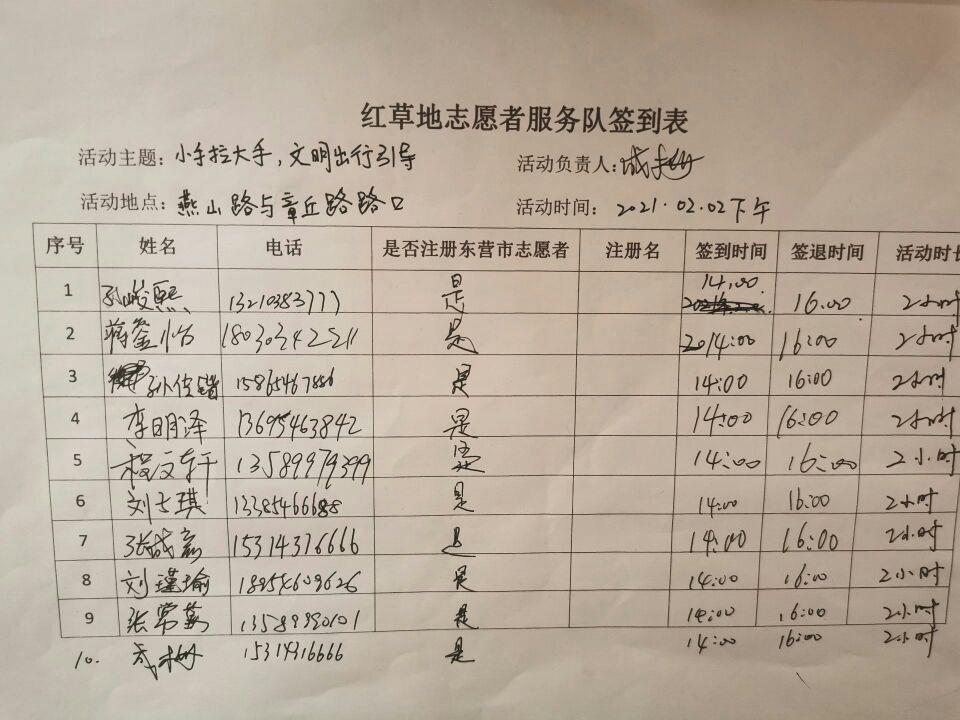 红草地志愿者服务队签到表
活动主题：小手拉大手，文明出行引导 活动负责人：
活动地点：燕山路与章丘路路口 活动时间：2021.02.02下午
序号 姓名 电话 是否注册东营市志愿者 注册名 签到时间 签退时间 活动时长
1 孙峻熙 13210383777 是 14:00 16:00 2小时
2 蒋銮怡 18030242211 是 14:00 16:00 2小时
3 孙佳锴 15865467856 是 14:00 16:00 2小时
4 李明泽 13695463842 是 14:00 16:00 2小时
5 程文轩 13589979399 是 14:00 16:00 2小时
6 刘士琪 13385466688 是 14:00 16:00 2小时
7 15314316666 是 14:00 16:00 2小时
8 刘瑾瑜 18954609626 是 14:00 16:00 2小时
9 张常 13589990101 是 14:00 16:00 2小时
10. 15314316666 是 14:00 16:00 2小时